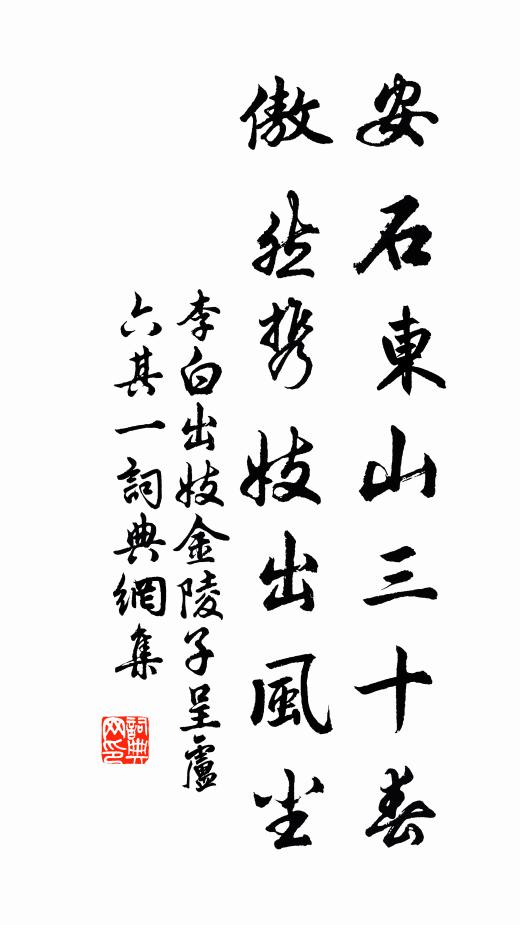 安石東山三十春
傲然携妓出風尘
李白出妓金陵子呈盧
六其一詞典網集
詞典
网印